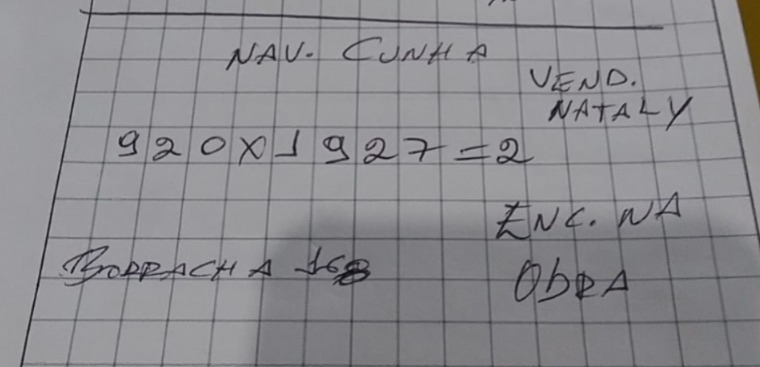 NAV. CUNHA
VEND.
NATALY
920X1927=2
ENC. NA
ObRA
BORRACHA 168